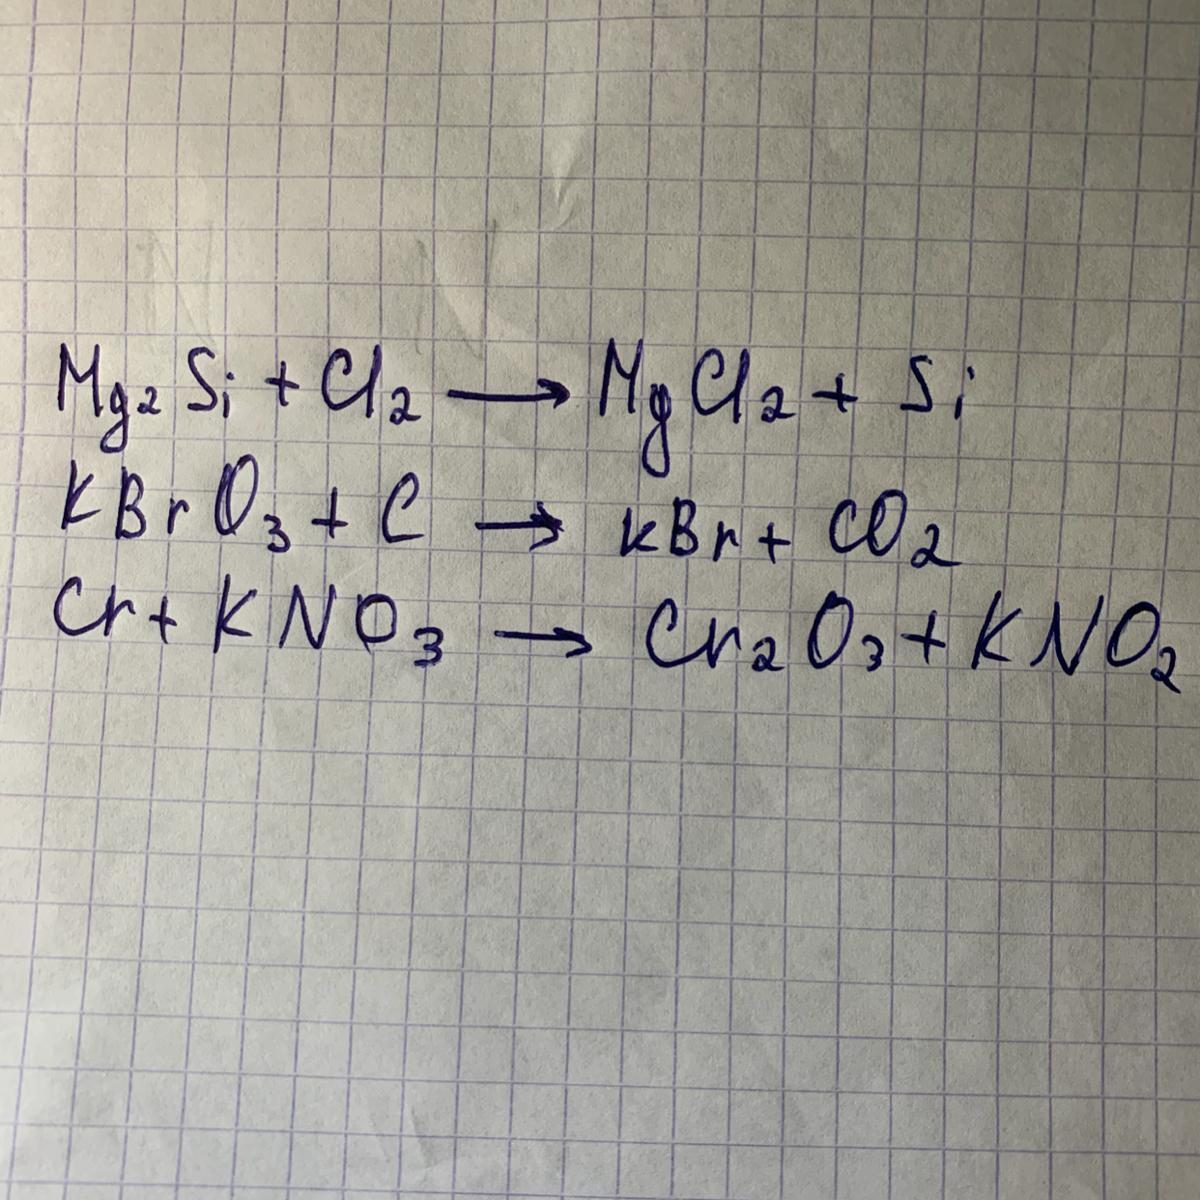 Mg₂Si + Cl₂ → MgCl₂ + Si
KBrO₃ + C → KBr + CO₂
Cr + KNO₃ → Cr₂O₃ + KNO₂